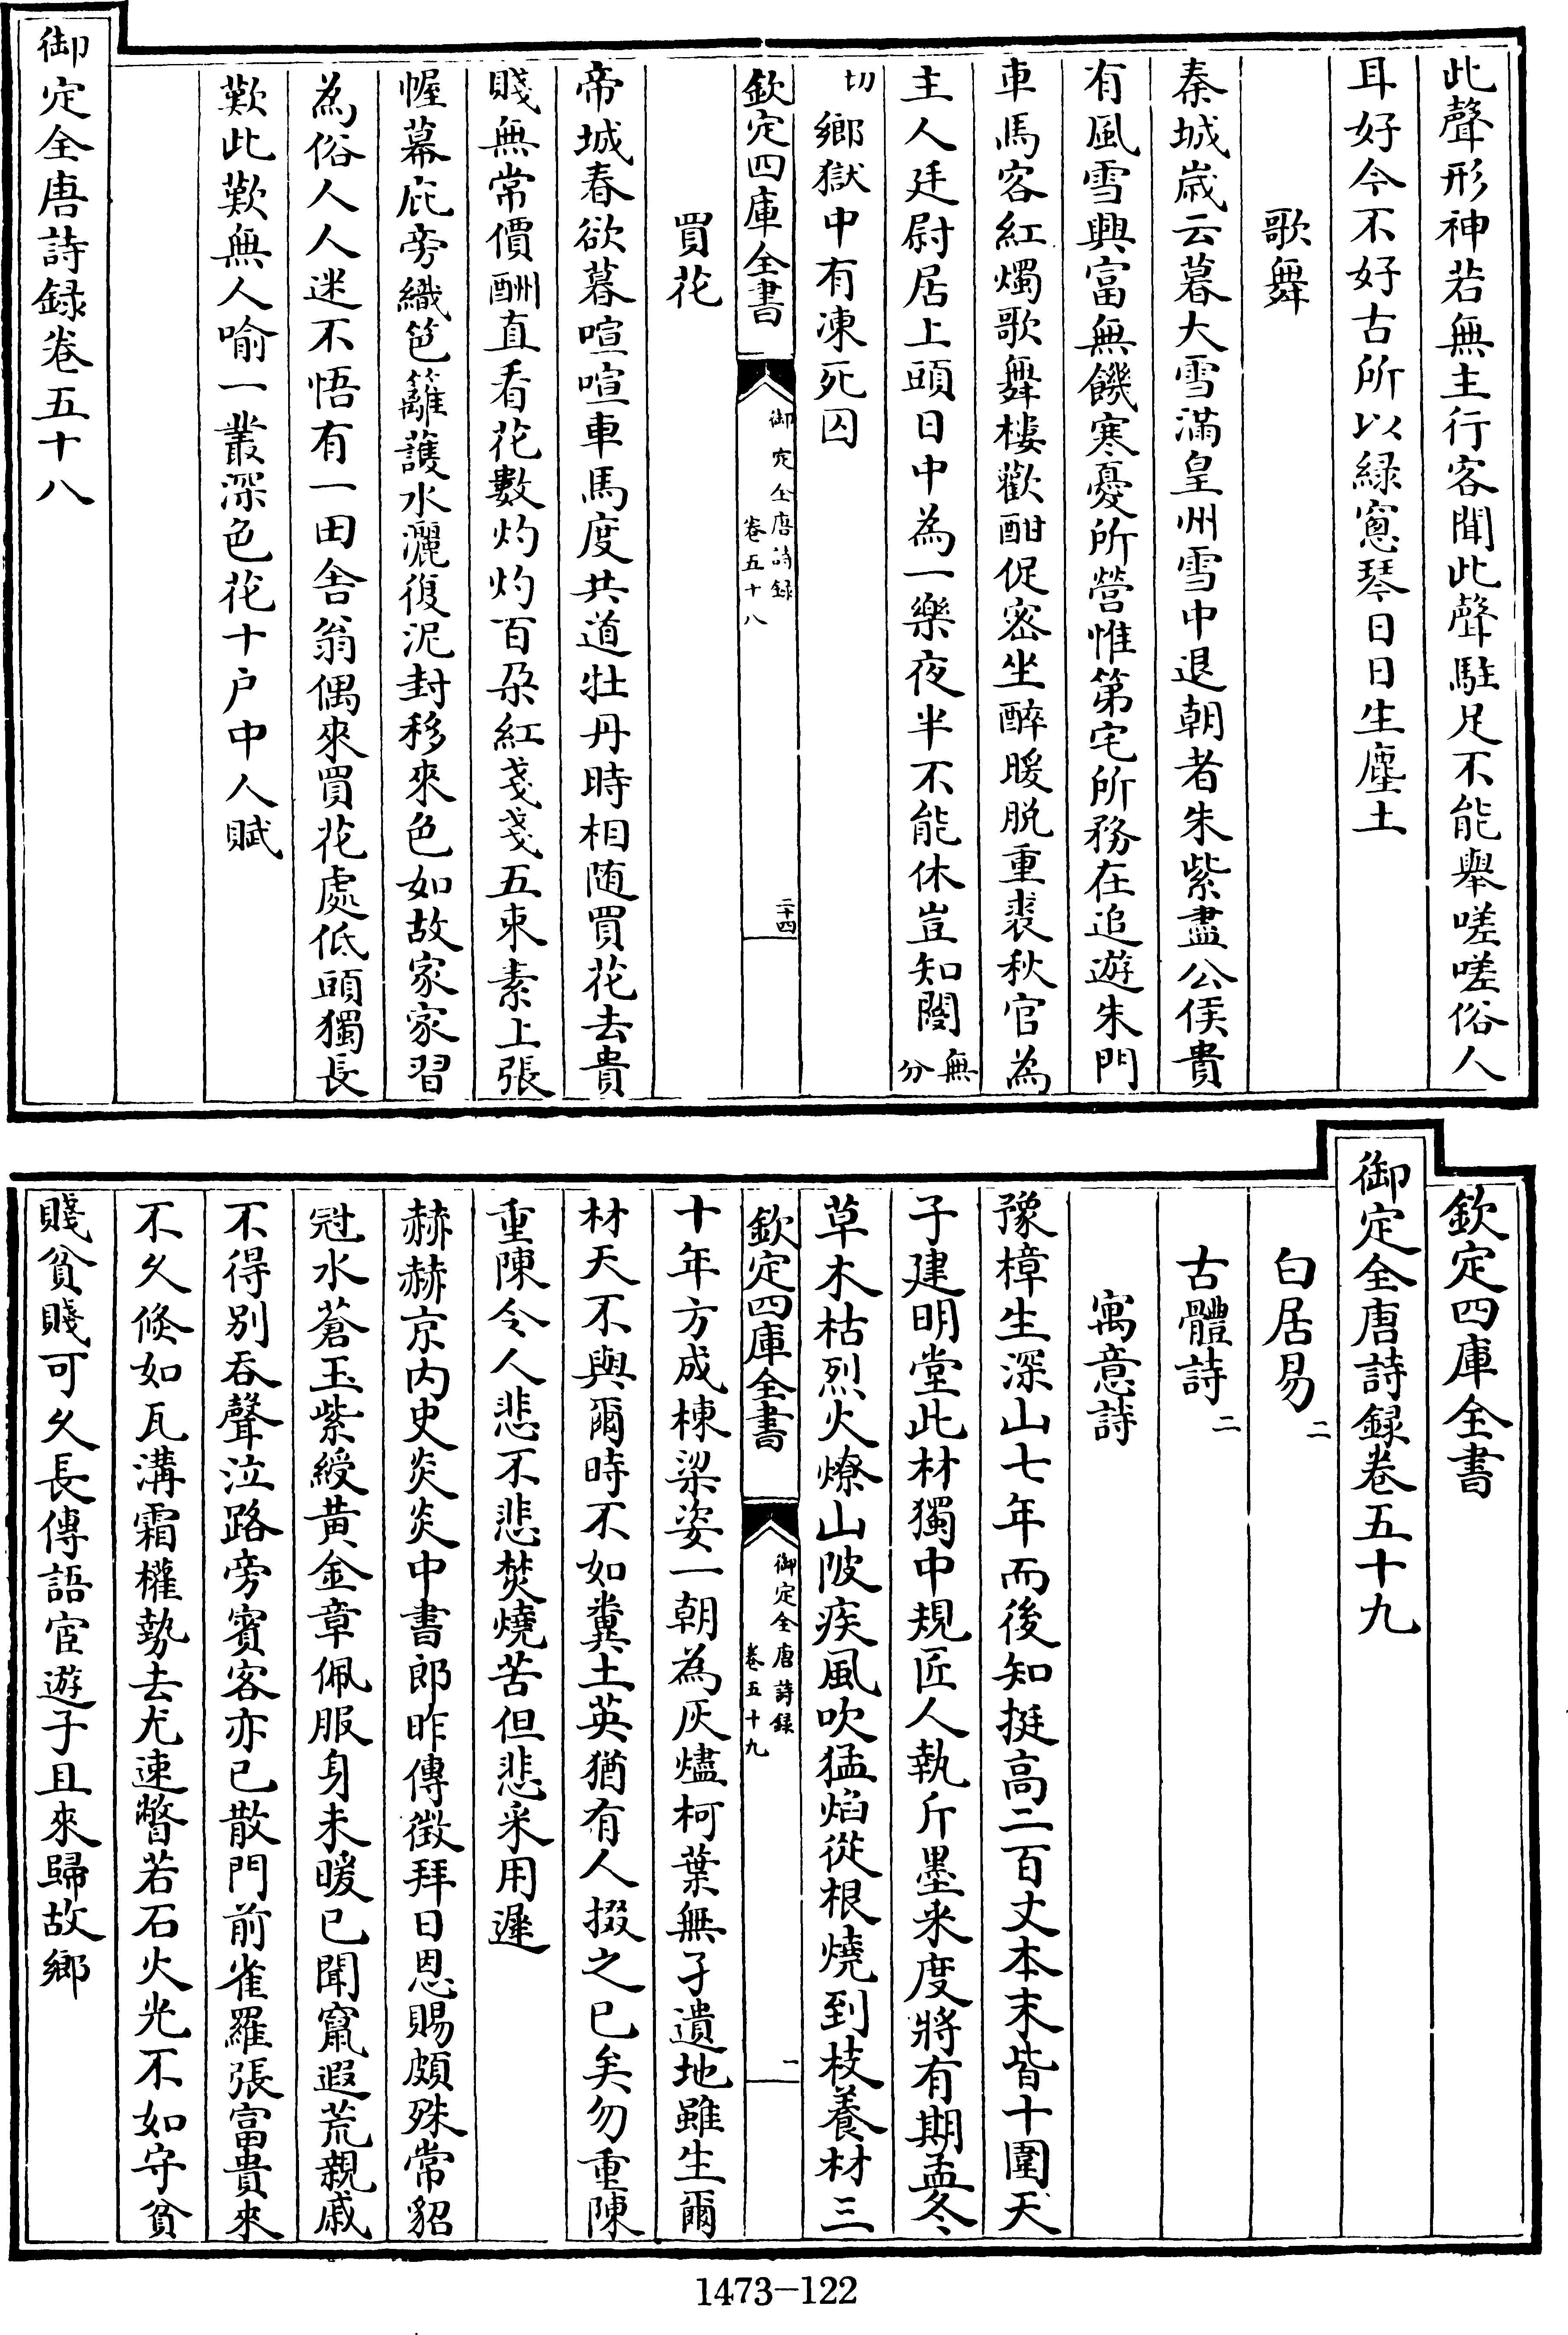 此聲形神若無主行客聞此聲駐足不能舉嗟嗟俗人
耳好今不好古所以緑窻琴日日生塵土
歌舞
秦城嵗云暮大雪滿皇州雪中退朝者朱紫盡公侯貴
有風雪興富無饑寒憂所營惟第宅所務在追遊朱門
車馬客紅燭歌舞樓歡酣促密坐醉暖脱重裘秋官為
主人廷尉居上頭日中為一樂夜半不能休豈知閿無分
切鄉獄中有凍死囚
欽定四庫全書
御定全唐詩録
卷五十八
二十四
買花
帝城春欲暮喧喧車馬度共道牡丹時相随買花去貴
賤無常價酬直看花數灼灼百朶紅戔戔五束素上張
幄幕庇旁織笆籬護水灑復泥封移來色如故家家習
為俗人人迷不悟有一田舎翁偶來買花處低頭獨長
歎此歎無人喻一叢深色花十户中人賦
御定全唐詩録卷五十八
欽定四庫全書
御定全唐詩録卷五十九
白居易二
古體詩二
寓意詩
豫樟生深山七年而後知挺高二百丈本末皆十圍天
子建明堂此材獨中規匠人執斤墨采度將有期孟冬
草木枯烈火燎山陂疾風吹猛焰從根燒到枝養材三
欽定四庫全書
御定全唐詩録
卷五十九
一
十年方成棟梁姿一朝為灰燼柯葉無孑遺地雖生爾
材天不與爾時不如糞土英猶有人掇之已矣勿重陳
重陳令人悲不悲焚燒苦但悲采用遲
赫赫京内史炎炎中書郎昨傳徵拜日恩賜頗殊常貂
冠水蒼玉紫綬黄金章佩服身未暖已聞竄遐荒親戚
不得别吞聲泣路旁賓客亦已散門前雀羅張富貴來
不久倐如瓦溝霜權勢去尤速瞥若石火光不如守貧
賤貧賤可久長傳語宦遊子且來歸故鄉
1473-122